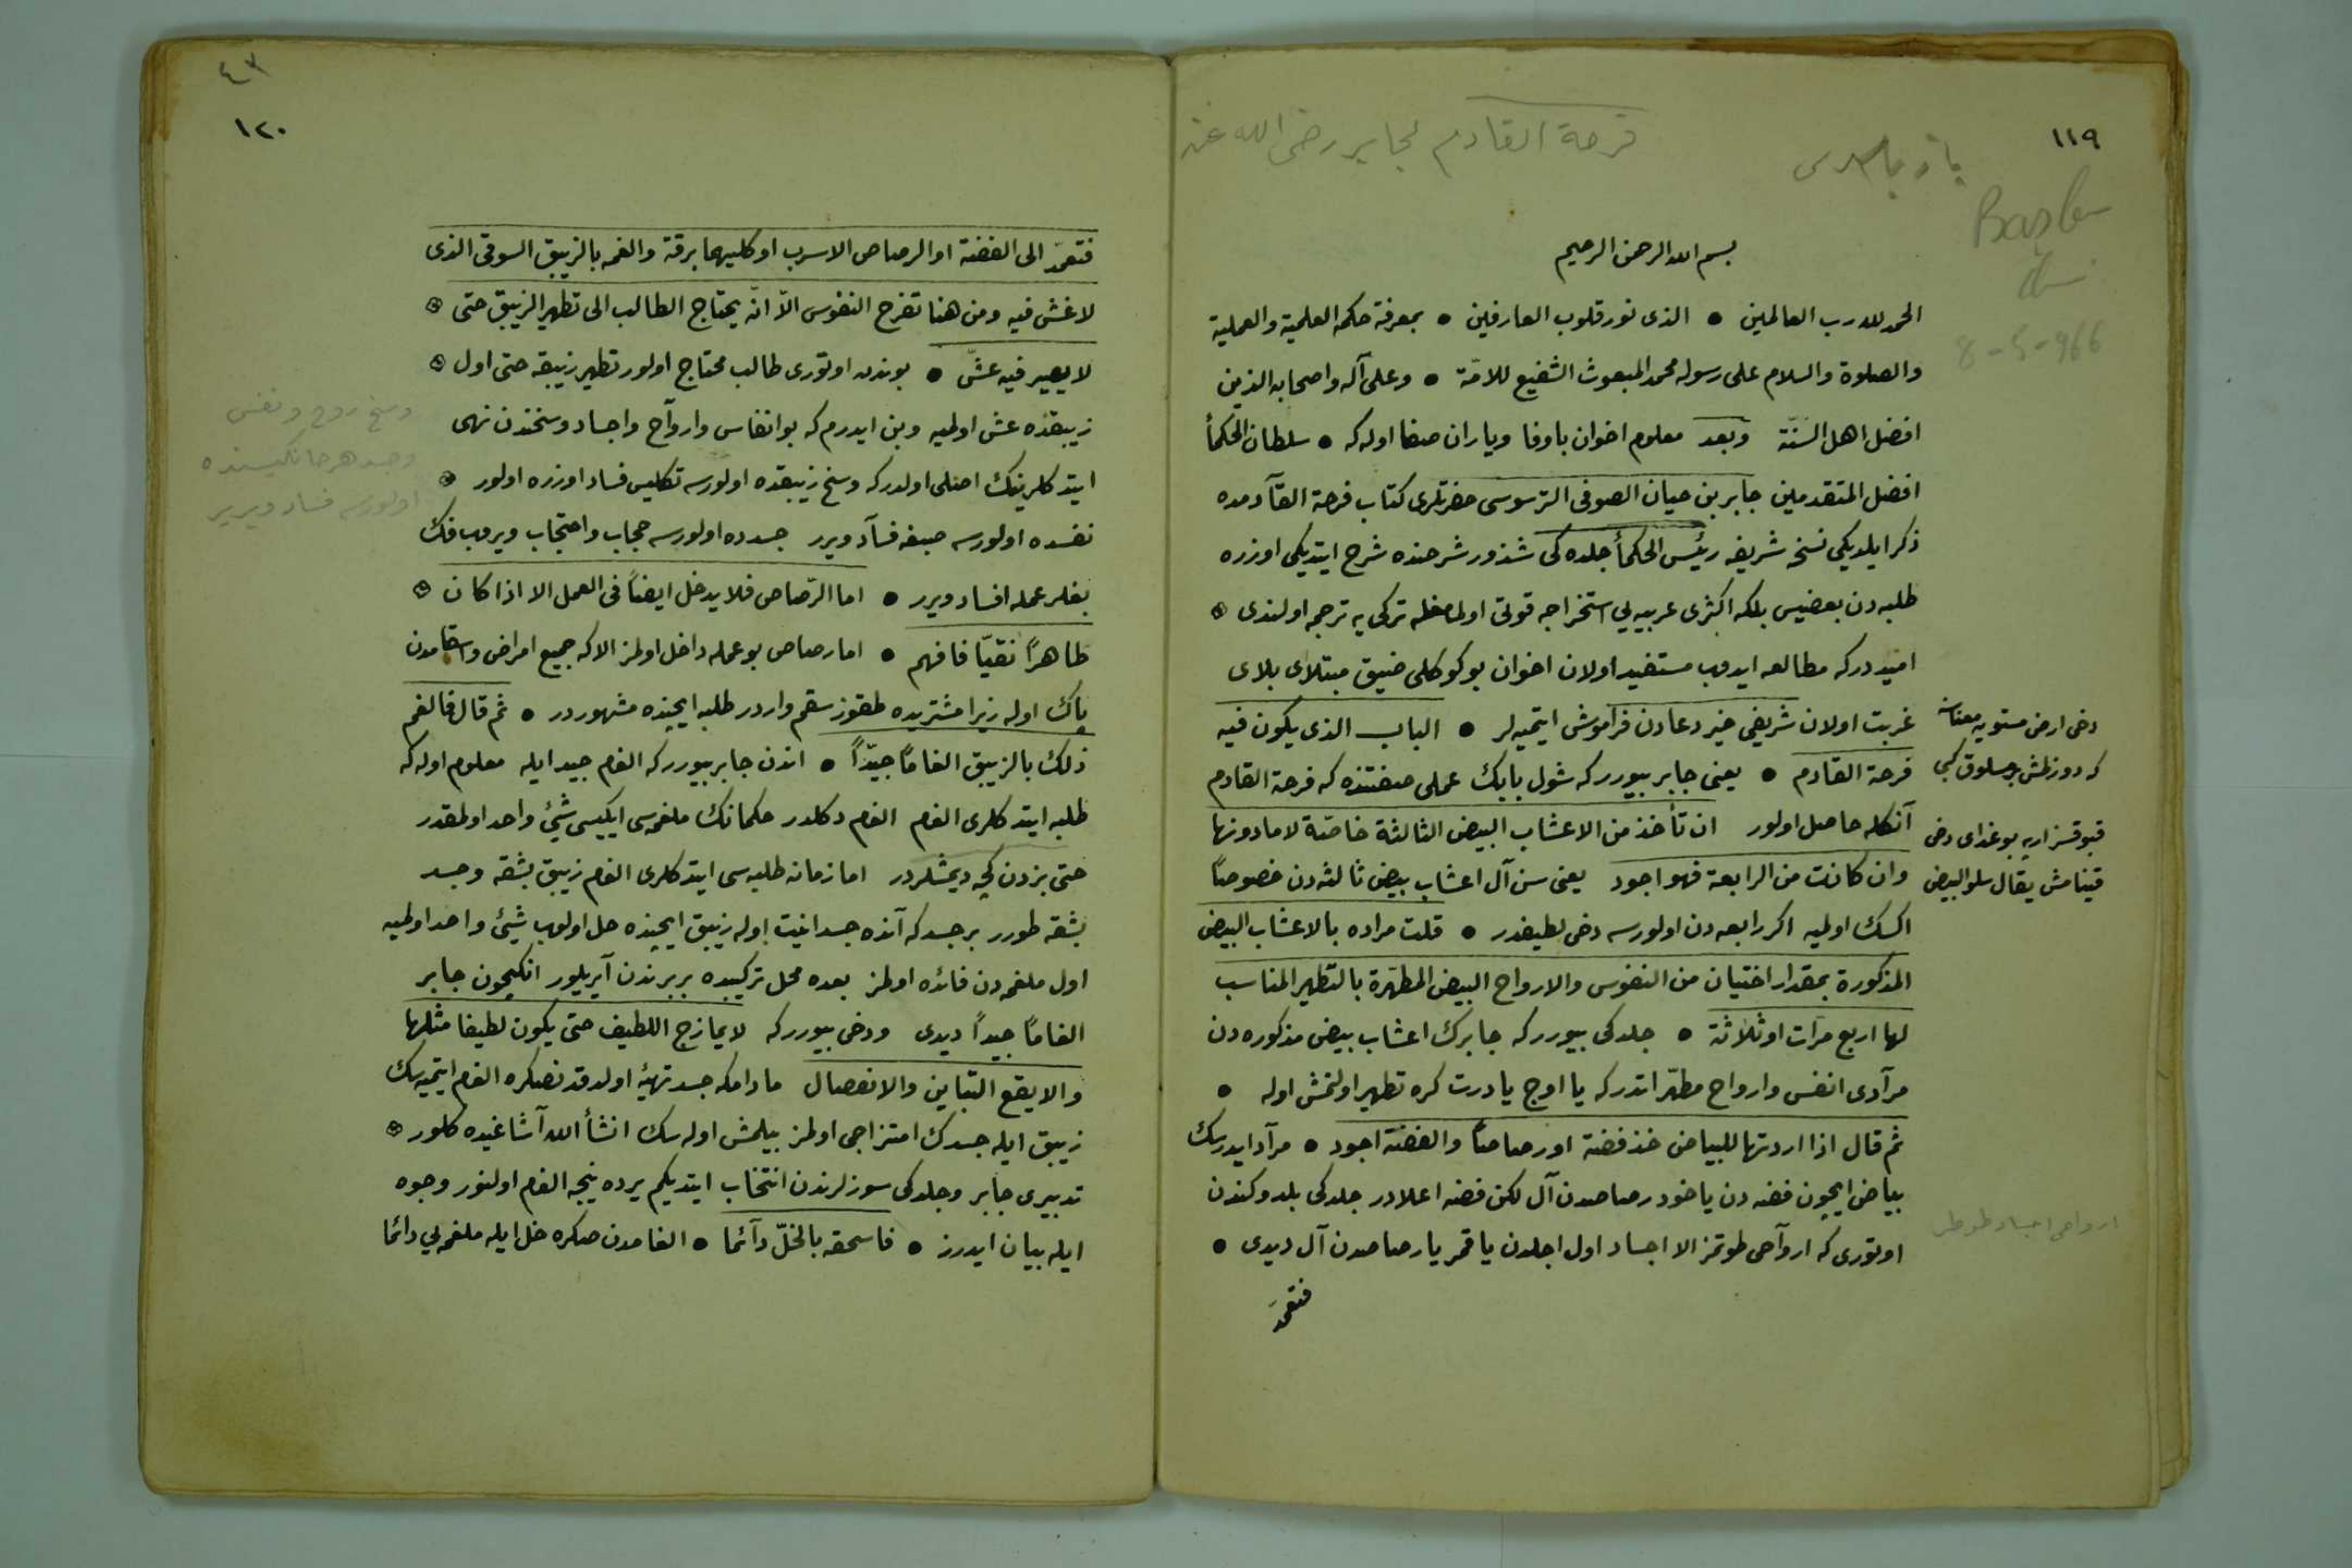 ١١٩
فرحة القادم لجابر رضى الله عنه
8-5-966
بسم الله الرحمن الرحيم
الحمد لله رب العالمين • الذى نور قلوب العارفين • بمعرفة حكمه العلمية والعملية
والصلوة والسلام على رسوله محمد المبعوث الشفيع للامّة • وعلى آله واصحابه الذين
افضل اهل السنّة وبعد معلوم اخوان باوفا وياران صفا اوله كه • سلطان الحكمأ
افضل المتقدمين جابر بن حيان الصوفى الترسوسى حضرتلرى كتاب فرحة القآدمده
ذكر ايلديكى نسخه شريفه رئيس الحكمأ جلدكى شذور شرحنده شرح ايتديكى اوزره
طلبه دن بعضيس بلكه اكثرى عربيه يى استخراجه قوتى اولماغله تركى يه ترجمه اولندى
اميد دركه مطالعه ايدوب مستفيد اولان اخوان بو كوكلى ضيق مبتلاى بلاى
غربت اولان شريفى خير دعادن فراموش ايتميه لر • الباب الذى يكون فيه
فرحة القادم • يعنى جابر بيورر كه شول بابك عملى صفتنده كه فرحة القادم
آنكله حاصل اولور ان تأخذ من الاعشاب البيض الثالثة خاصّة لا مادونها
وان كانت من الرابعة فهو اجود يعنى سن آل اعشاب بيض ثالثه دن خصوصاً
اكسك اولميه اكر رابعه دن اولورسه دخى لطيفدر • قلت مراده بالاعشاب البيض
المذكورة بمقدار اختيان من النفوس والارواح البيض المطهّرة بالتطهير المناسب
لها اربع مرآت او ثلاثة • جلدكى بيورر كه جابرك اعشاب بيض مذكوره دن
مرآدى انفس وارواح مطهّر اتدر كه يا اوج يا درت كره تطهير اولنمش اوله •
ثم قال اذا اردتها للبياض خذ فضة او رصاصاً والفضّة اجود • مرآد ايدرسك
بياض ايچون فضه دن ياخود رصاصدن آل لكن فضه اعلادر جلدكى بلدوكندن
اوتورى كه اروآحى طوتمز الا اجساد اول اجلدن يا قمر يا رصاصدن آل ديدى •
فتعمّد
دخى ارض مستويه معناسنه
كه دوزلمش
يقال سلو البيض
ارواحى اجساد طوطر
٤٣
١٢٠
فتعمّد الى الفضة او الرصاص الاسرب او كليهما برقة والغمه بالزيبق السوقى الذى
لا غش فيه ومن هنا تفرح النفوس الاّ انّه يحتاج الطالب الى تطهير الزيبق حتى
لا يصير فيه غشّ • بوندن اوتورى طالب محتاج اولور تطهير زيبقه حتى اول
زيبقده غش اولميه وبن ايدرم كه بو انفاس وارواح واجساد وسخندن نهى
ايتدكلرينك اصلى اولدر كه وسخ زيبقده اولورسه تكليس فساد اوزره اولور
نفسده اولورسه صبغه فسآد ويرر جسدده اولورسه حجاب واحتجاب ويروب فك
بغلر عمله افساد ويرر • اما الرّصاص فلا يدخل ايضاً فى العمل الا اذا كان
طاهراً نقيّا فافهم • اما رصاص بو عمله داخل اولمز الا كه جميع امراض واسقامدن
پاك اوله زيرا مشتريده طقوز سقم واردر طلبه ايچنده مشهوردر • ثم قال فالغم
ذلك بالزيبق الغاماً جيّداً • اندن جابر بيورر كه الغام جيد ايله معلوم اوله كه
طلبه ايتدكلرى الغام الغام دكلدر حكمانك ملغمه سى ايكيسى شيئ واحد اولمقدر
حتى بزدن كچه ديمشلردر اما زمانه طلبه سى ايتدكلرى الغام زيبق بشقه وجسد
بشقه طورر بر جسد كه آنده جسدانيت اوله زيبق ايچنده حل اولوب شيئ واحد اولميه
اول ملغمه دن فائده اولمز بعده محل تركيبده بربرندن آيريلور انكيچون جابر
الغاماً جيداً ديدى ودخى بيورر كه لا يمازج اللطيف حتى يكون لطيفا مثلها
والا يقع التباين والانفصال مادامكه جسد تهيئه اولدقدنصكره الغام ايتميه سك
زيبق ايله جسدك امتزاجى اولمز بيلمش اوله سك انشأ الله آشاغيده كلور
تدبيرى جابر وجلدكى سوزلرندن انتخاب ايتديكم يرده نيجه الغام اولنور وجوه
ايله بيان ايدرز • فاسحقه بالخلّ دآئما • الغامدن صكره خل ايله ملغمه يى دائما
وسخ روح ونفس
وجسد هر حانكيسنده
اولورسه فساد ويرير